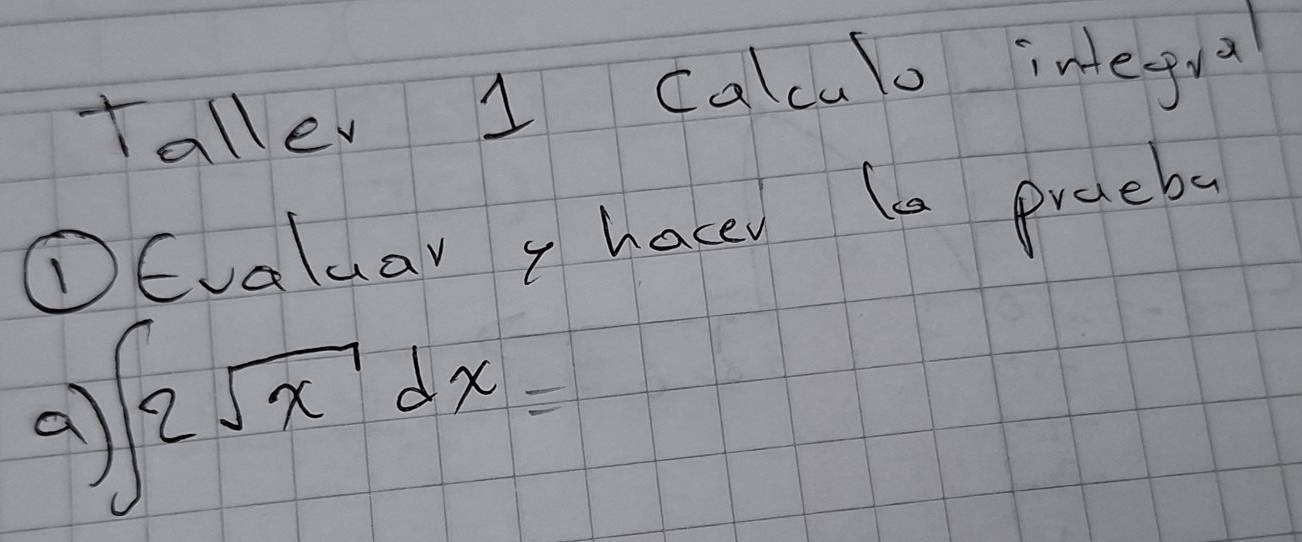 Taller 1 Calculo integral
① Evaluar y hacer la prueba
a) ∫2√x dx =